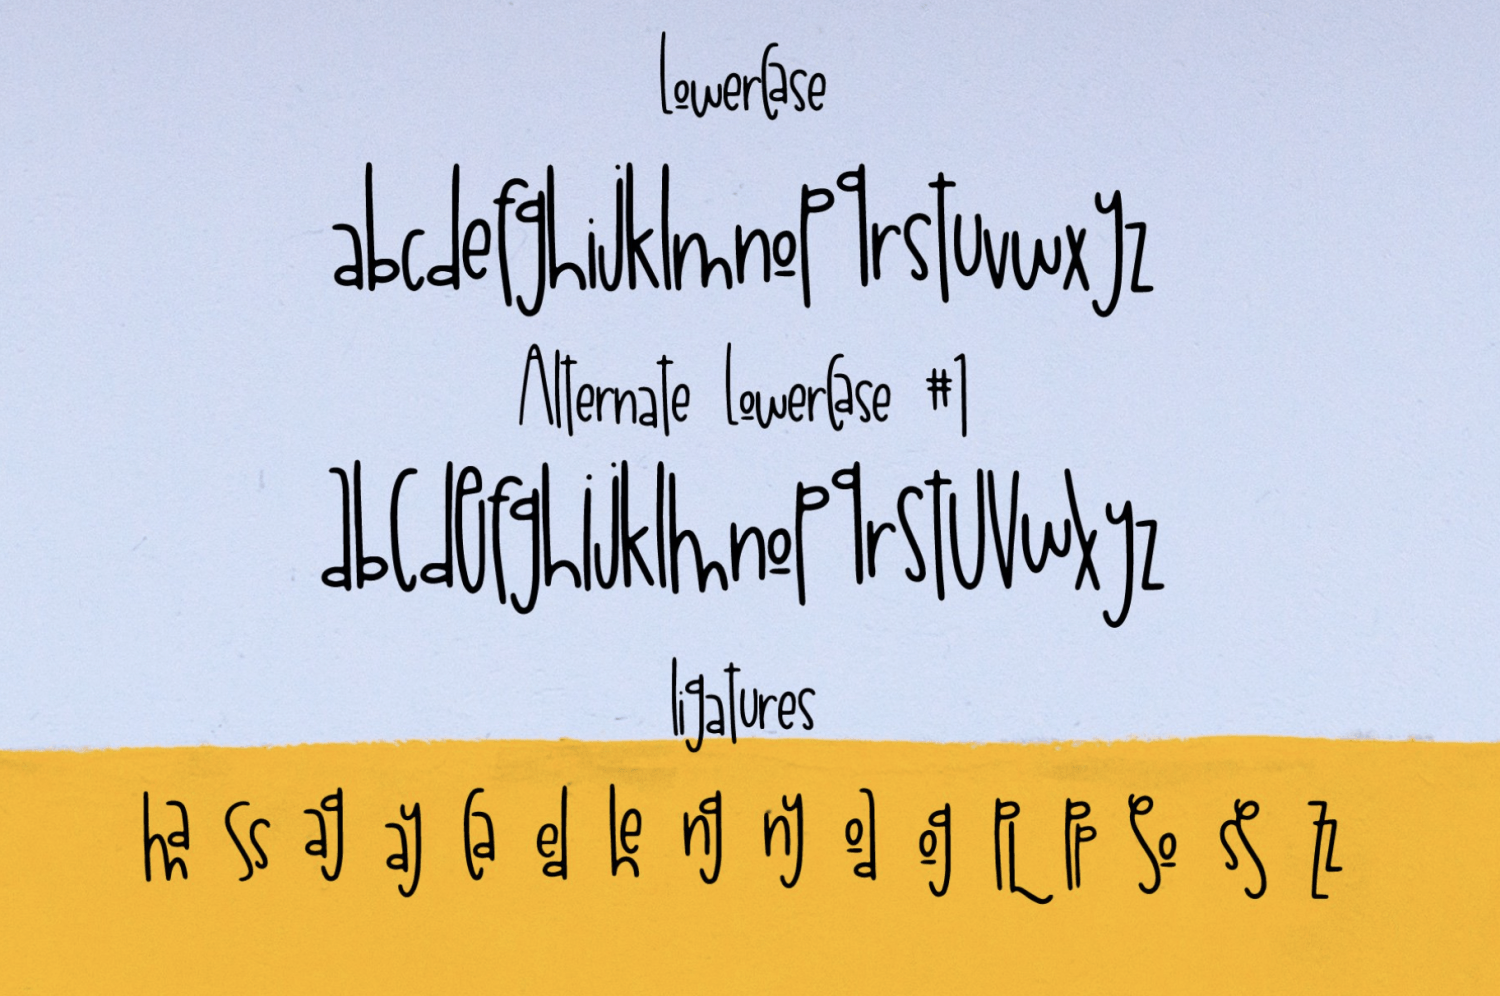 LowerCase
abcdefghijklmnopqrstuvwxyz
Alternate LowerCase #1
abcdefghijklmnopqrstuvwxyz
ligatures
ha ss ag ay ca ed he ng ny oa og pl pp zz